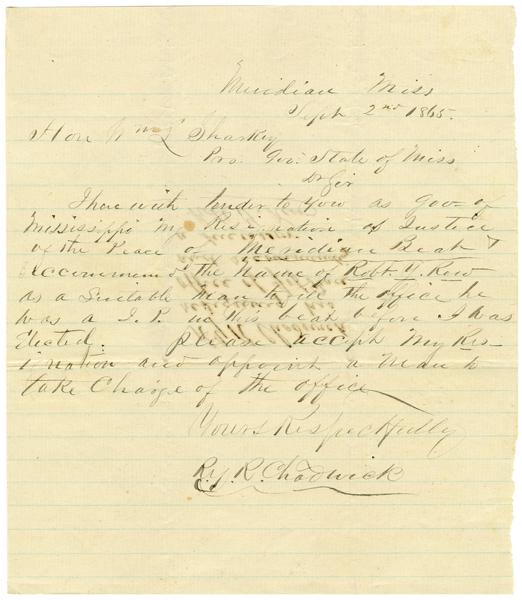 Meridian Miss
Sept 2nd 1865.
Hon Wm L Sharkey
Pro. Gov. State of Miss
Dr Sir
I herewith tender to you as Gov of
Mississippi my Resination of Justice
of the Peace of Meridian Beat &
reccommend the name of Robt
as a Suitable man to the office he
was a J. P. in this beat before I was
Elected. please accept my Res-
ination and appoint a man to
take Charge of the office
Yours Respectfully
R. Y. R. Chadwick